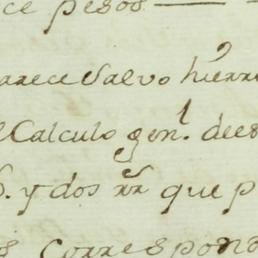 ce pesos
arece salvo hierro
l Calculo gen.l de es
s. y dos rr que p
os correspon